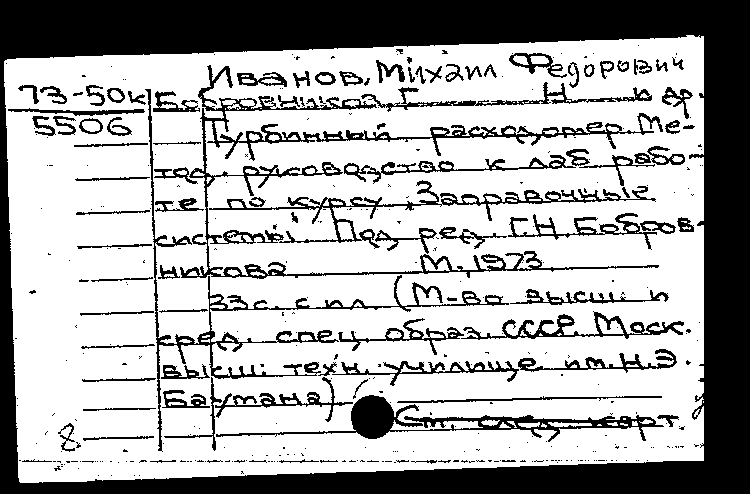 Иванов, Михаил Федорович
73-50к Бобровников, Г Н и др.
5506 Турбинный расходомер. Ме-
тод. руководство к лаб рабо-
те по курсу "Заправочные
системы". Под ред. Г.Н. Бобров-
никова. М., 1973.
33с. с ил. (М-во высш. и
сред. спец. образ. СССР. Моск.
высш. техн. училище им. Н.Э.
Баумана)
См. след. карт.
8.